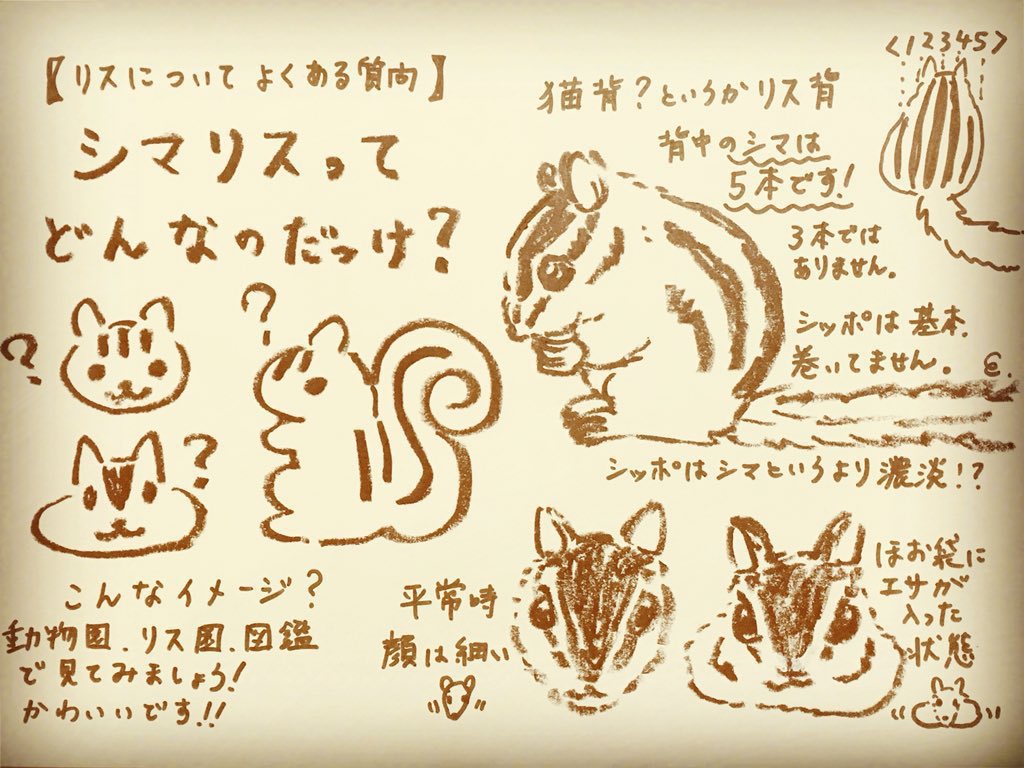 【リスについて よくある質向】
シマリスって
どんなのだっけ?
?
?
?
こんなイメージ?
動物園.リス園.図鑑
で見てみましょう!
かわいいです!!
<12345>
猫背?というかリス背
背中のシマは
5本です!
3本では
ありません。
シッポは基本.
巻いてません。
シッポはシマというより濃淡!?
平常時
顔は細い
ほお袋に
エサが
入った
状態